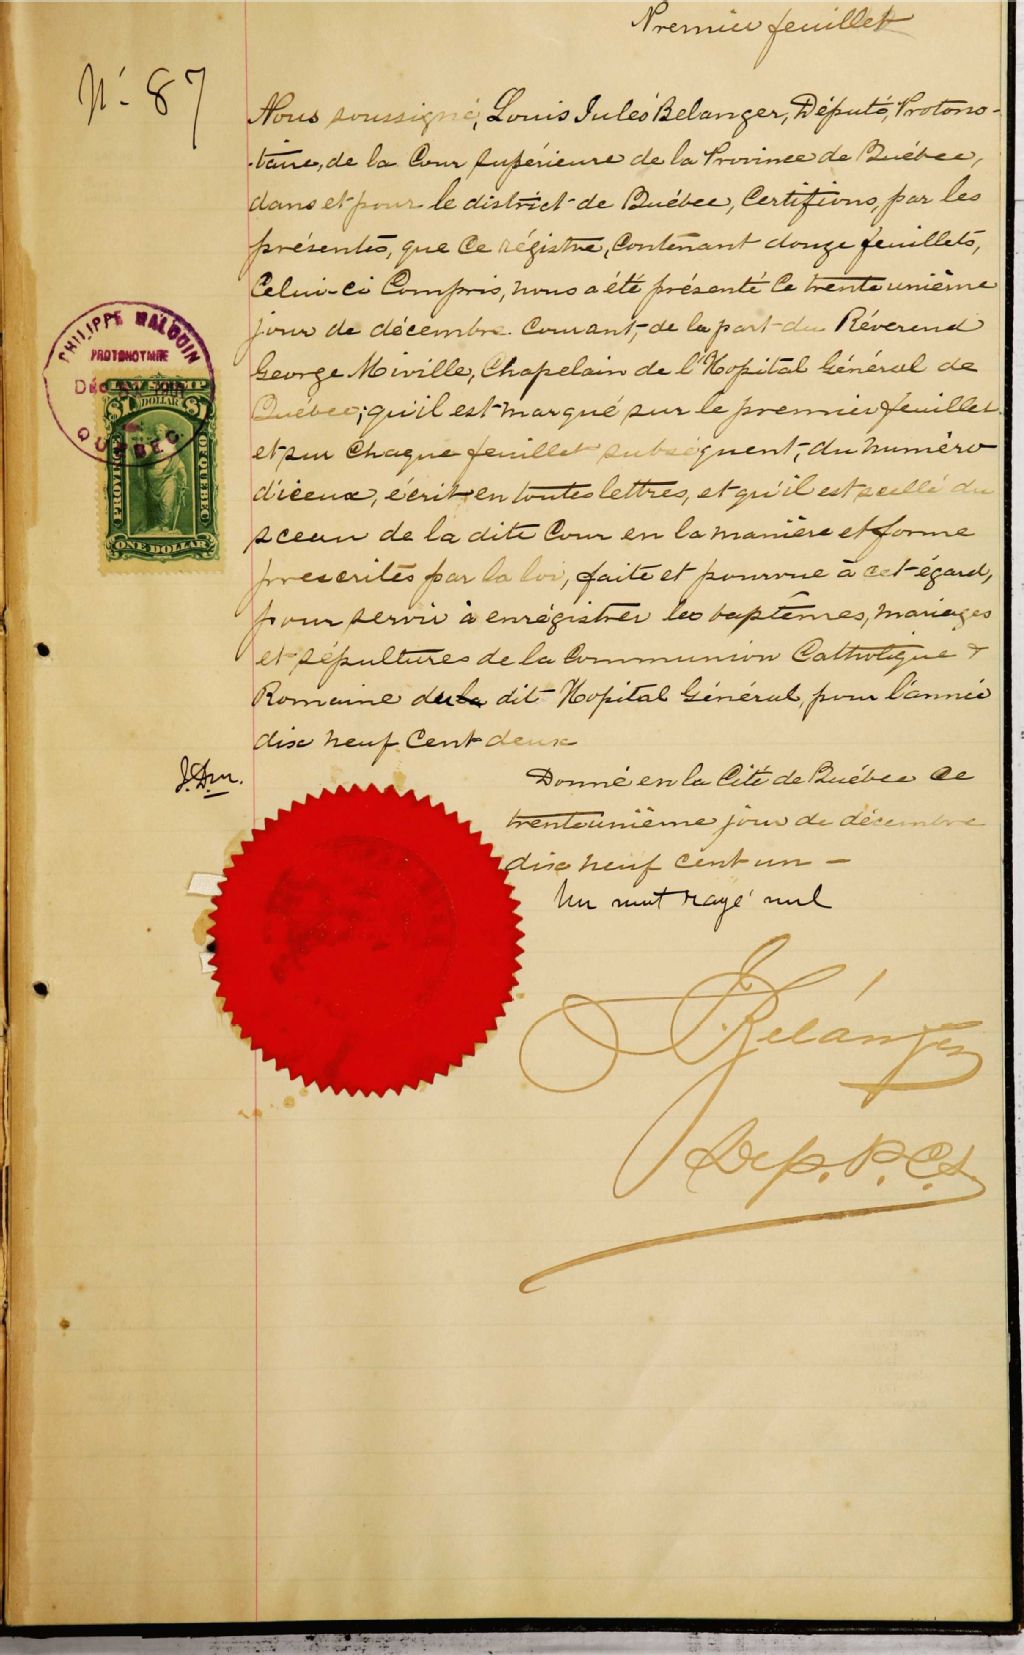 Premier feuillet
N° 87
Nous soussigné, Louis Jules Belanger, Député, Protono-
-taire, de la Cour supérieure de la Province de Québec,
dans et pour le district de Québec, Certifions, par les
présentes, que ce régistre, contenant douze feuillets,
Celui-ci Compris, nous a été présenté ce trente unième
jour de décembre courant, de la part du Révérend
George Miville, Chapelain de l'Hopital Général de
Québec; qu'il est marqué sur le premier feuillet
et sur chaque feuillet subséquent, du numéro
d'iceux, écrit en toutes lettres, et qu'il est scellé du
sceau de la dite Cour en la manière et forme
prescrites par la loi, faite et pourvue à cet égard,
pour servir à enrégistrer les baptêmes, mariages
et sépultures de la Communion Catholique &
Romaine du la dit Hopital Général, pour l'année
dix neuf Cent deux
Donné en la Cité de Québec ce
trente unième jour de décembre
dix neuf cent un —
Un mot rayé nul
J. Bélanger
Dep. P. C. S.
PHILIPPE MALOUIN
PROTONOTAIRE
QUEBEC
LAW STAMP
$1 DOLLAR $1
PROVINCE OF QUEBEC
ONE DOLLAR